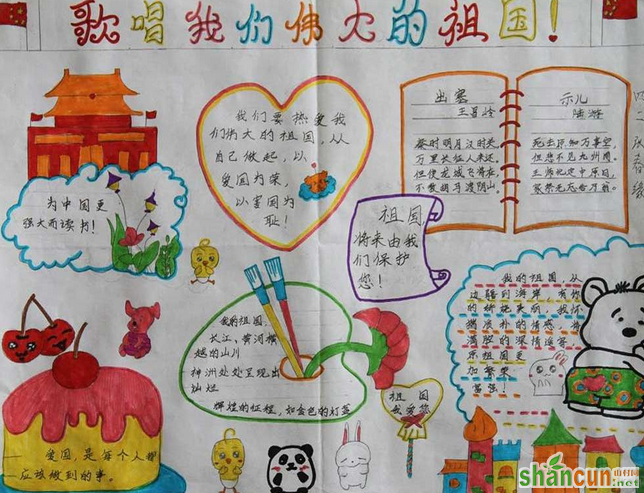 歌唱我们伟大的祖国!
我们要热爱我
们伟大的祖国,从
自己做起,以
爱国为荣,
以害国为
耻!
出塞
王昌龄
秦时明月汉时关
万里长征人未还
但使龙城飞将在
不教胡马渡阴山
示儿
陆游
死去原知万事空
但悲不见九州同
王师北定中原日
家祭无忘告乃翁
为中国更
强大而读书!
祖国
将来由我
们保护
您!
我的祖国,
长江,黄河横
越的山川
神州处处呈现出
灿烂
辉煌的征程,如金色的灯盏
我的祖国,从
边疆到海岸有你
的娇艳美丽,我怀
揣淳朴的情感,将
满腔的深情遥寄,
原祖国更
加繁荣
富强!
祖国
我爱您
爱国,是每个人都
应该做到的事。
shancun
山村网
.net